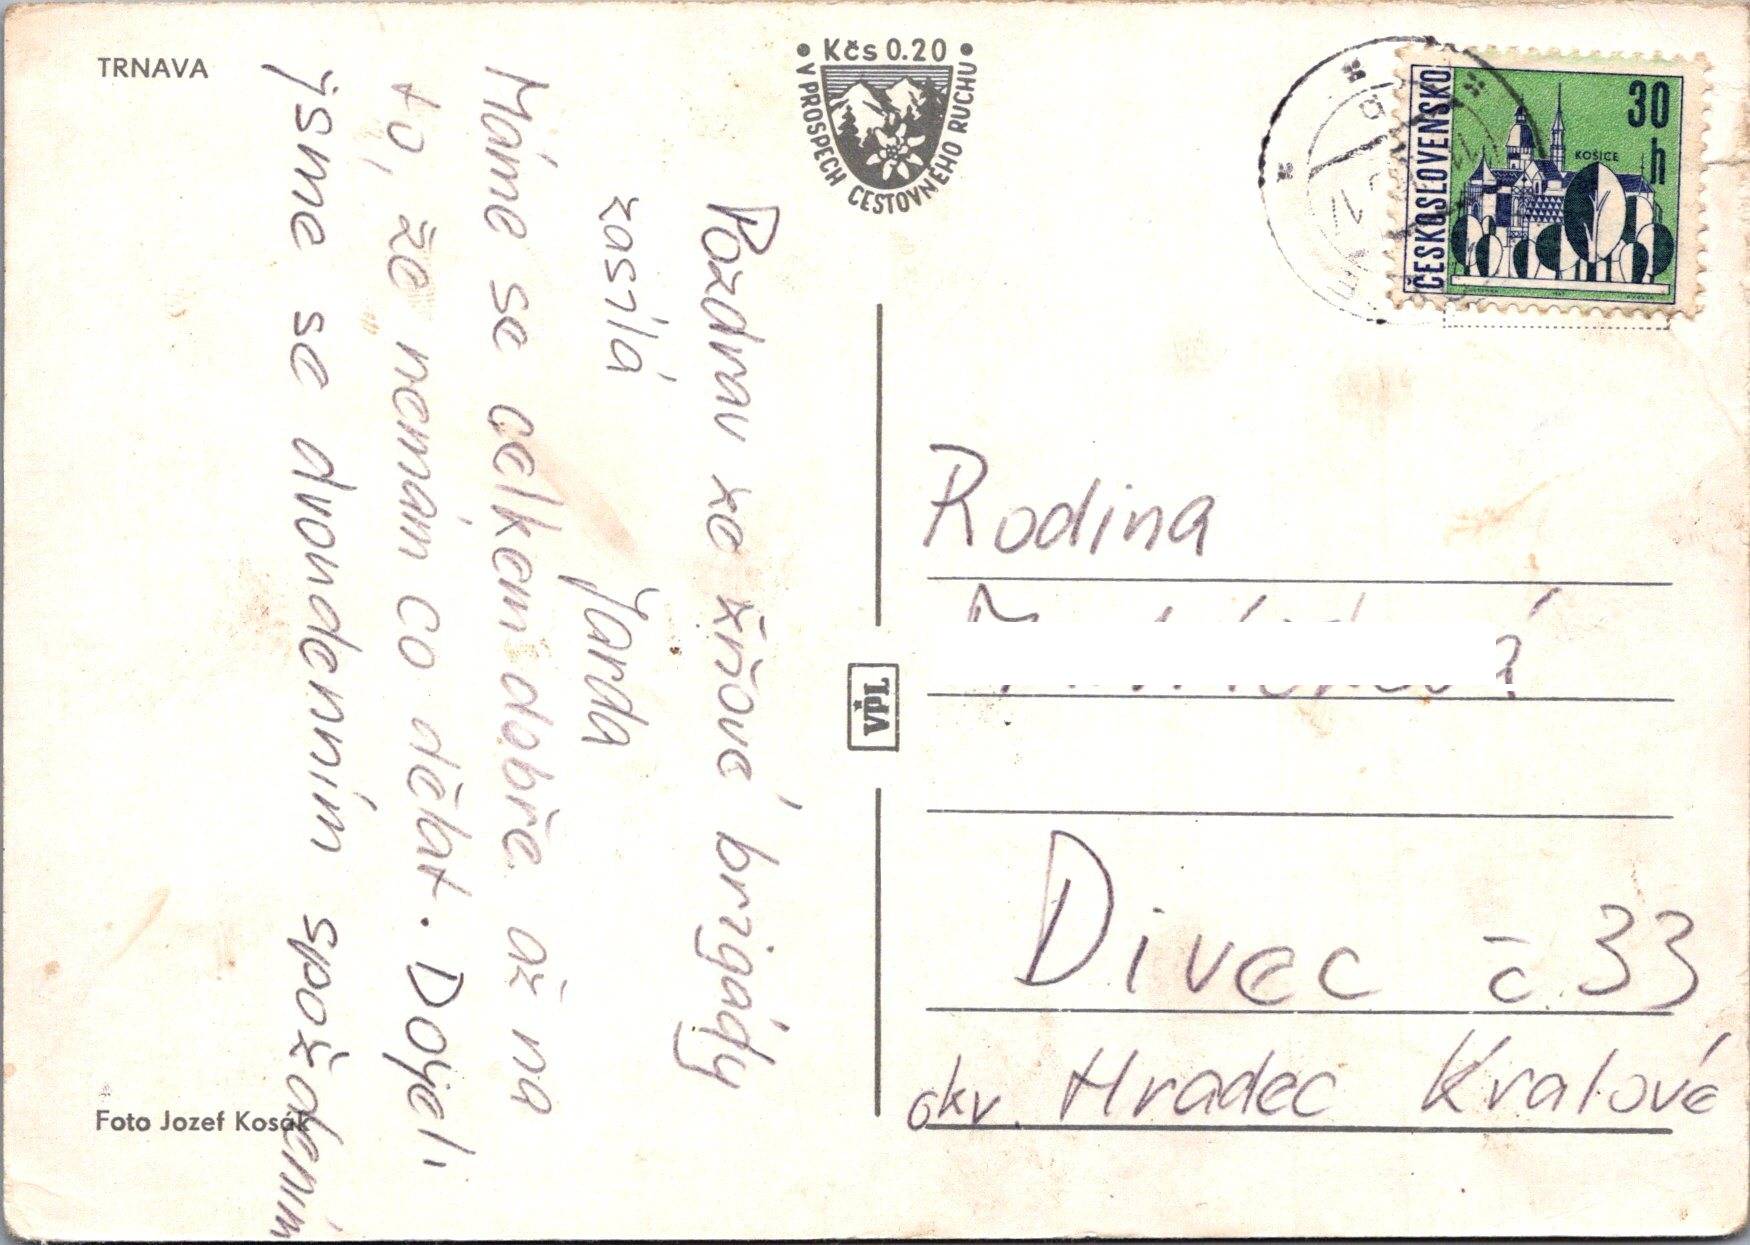 TRNAVA
• Kčs 0.20 •
V PROSPECH CESTOVNÉHO RUCHU
ČESKOSLOVENSKO
30
h
KOŠICE
Pozdrav ze žňové brigády
zasílá
Jarda
Máme se celkem dobře až na
to, že nemám co dělat. Dojeli
jsme se dvoudenním spožděním
VPL
Rodina
Divec č 33
okv. Hradec Kralové
Foto Jozef Kosák